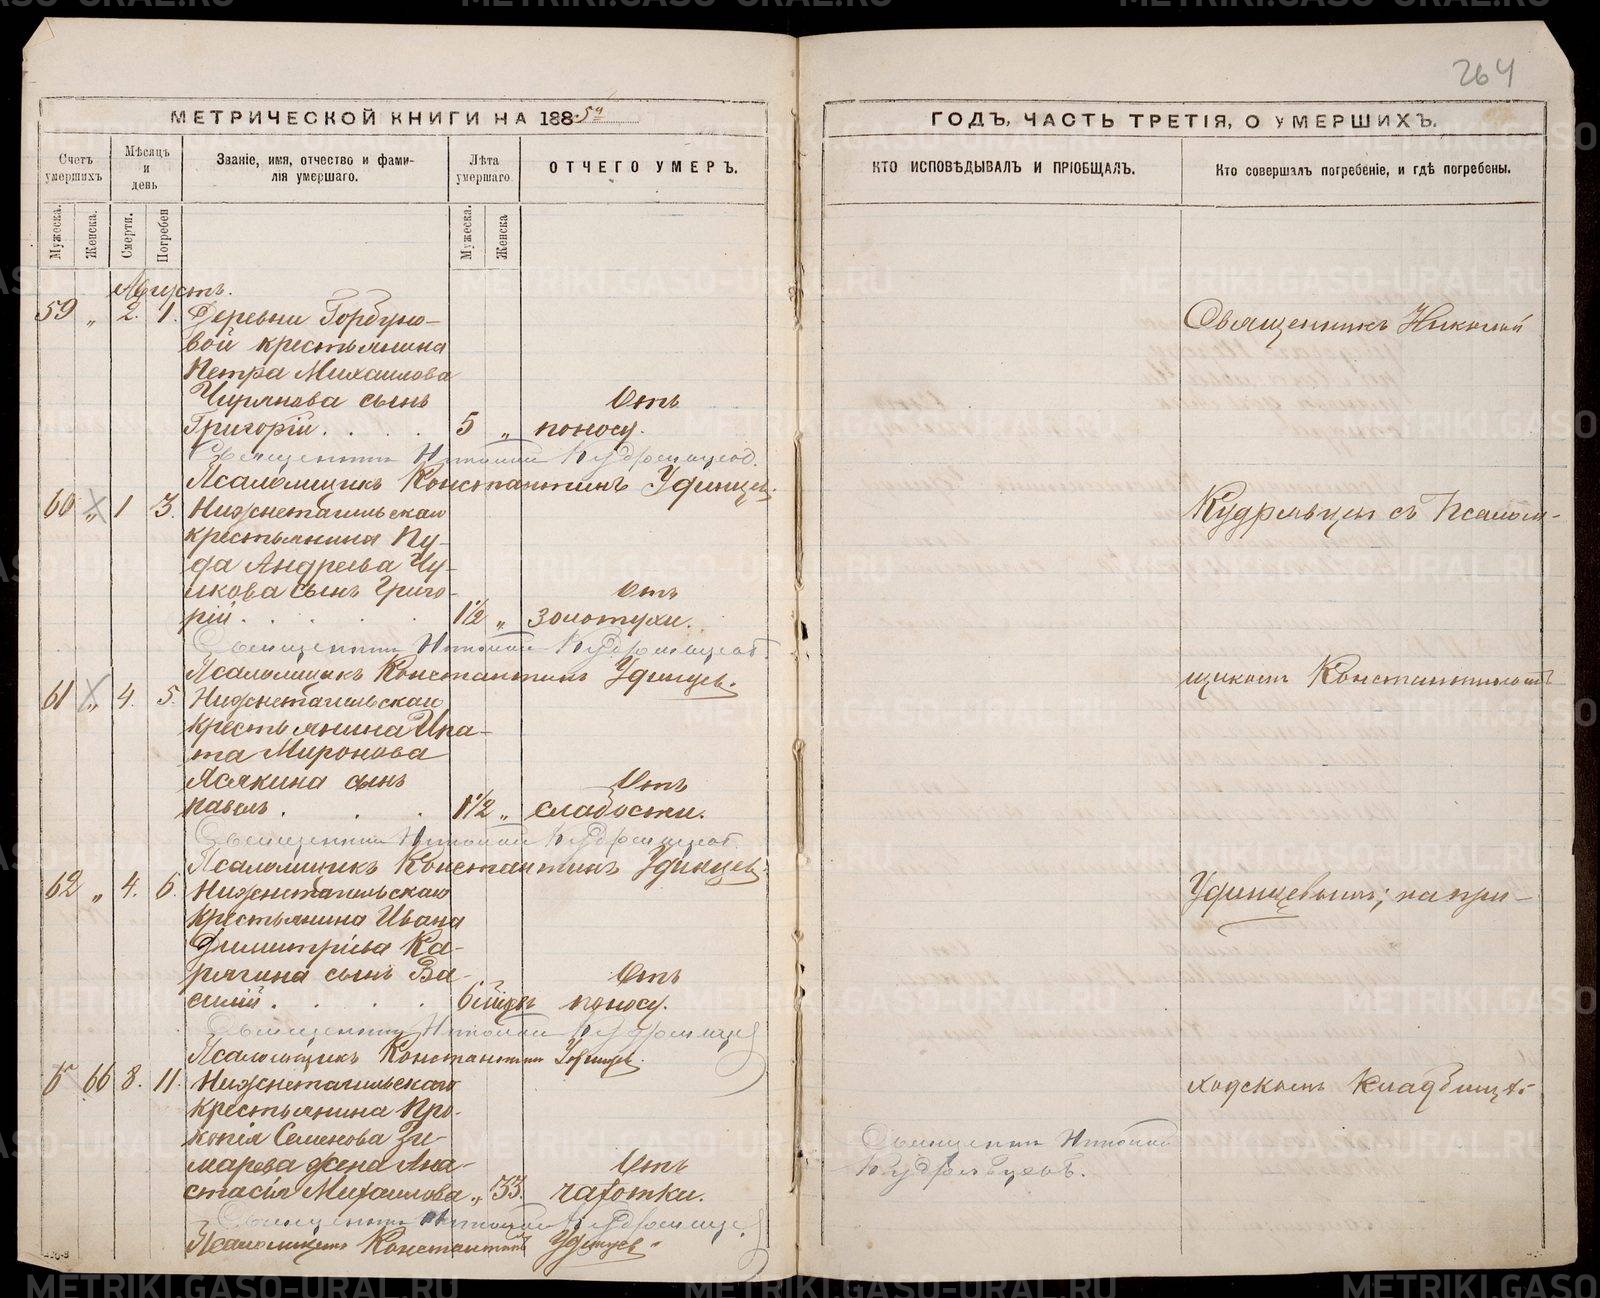 264
МЕТРИЧЕСКОЙ КНИГИ НА 1885й
ГОДЪ, ЧАСТЬ ТРЕТІЯ, О УМЕРШИХЪ.
Счетъ умершихъ
Мѣсяцъ и день
Званіе, имя, отчество и фами-
лія умершаго.
Лѣта умершаго
ОТЧЕГО УМЕРЪ.
КТО ИСПОВѢДЫВАЛЪ И ПРІОБЩАЛЪ.
Кто совершалъ погребеніе, и гдѣ погребены.
Мужеска.
Женска.
Смерти.
Погребен
Мужеска.
Женска
Августъ.
59 „ 2. 1. Деревни Горбуно-
вой крестьянина
Петра Михаилова
сынъ Отъ
Григорій. 5 „ поносу.
Священникъ Николай Кудрявцевъ.
Псаломщикъ Константинъ Удинцевъ.
60 „ 1 3. Нижнетагильскаго
крестьянина Пу-
да Андреева Чу-
кова сынъ Григо- Отъ
рій. 1 1/2 „ золотухи.
Священникъ Николай Кудрявцевъ.
Псаломщикъ Константинъ Удинцевъ.
61 „ 4. 5. Нижнетагильскаго
крестьянина Ипа-
та Миронова
сынъ Отъ
Павелъ. 1 1/2 „ слабости.
Священникъ Николай Кудрявцевъ
Псаломщикъ Константинъ Удинцевъ.
62 „ 4. 6. Нижнетагильскаго
крестьянина Ивана
Димитріева Ка-
рягина сынъ Ва- Отъ
силій. 6 поносу.
Священникъ Николай Кудрявцевъ
Псаломщикъ Константинъ Удинцевъ.
66 8. 11. Нижнетагильскаго
крестьянина Про-
копія Семенова Зи-
марева жена Ана- Отъ
стасія Михаилова „ 33. чахотки.
Священникъ Николай Кудрявцевъ
Псаломщикъ Константинъ Удинцевъ
Священникъ Николай
Кудрявцевъ.
Священникъ Николай
Кудрявцевъ съ Псалом-
щикомъ Константиномъ
Удинцевымъ; на при-
ходскомъ кладбищѣ
METRIKI.GASO-URAL.RU